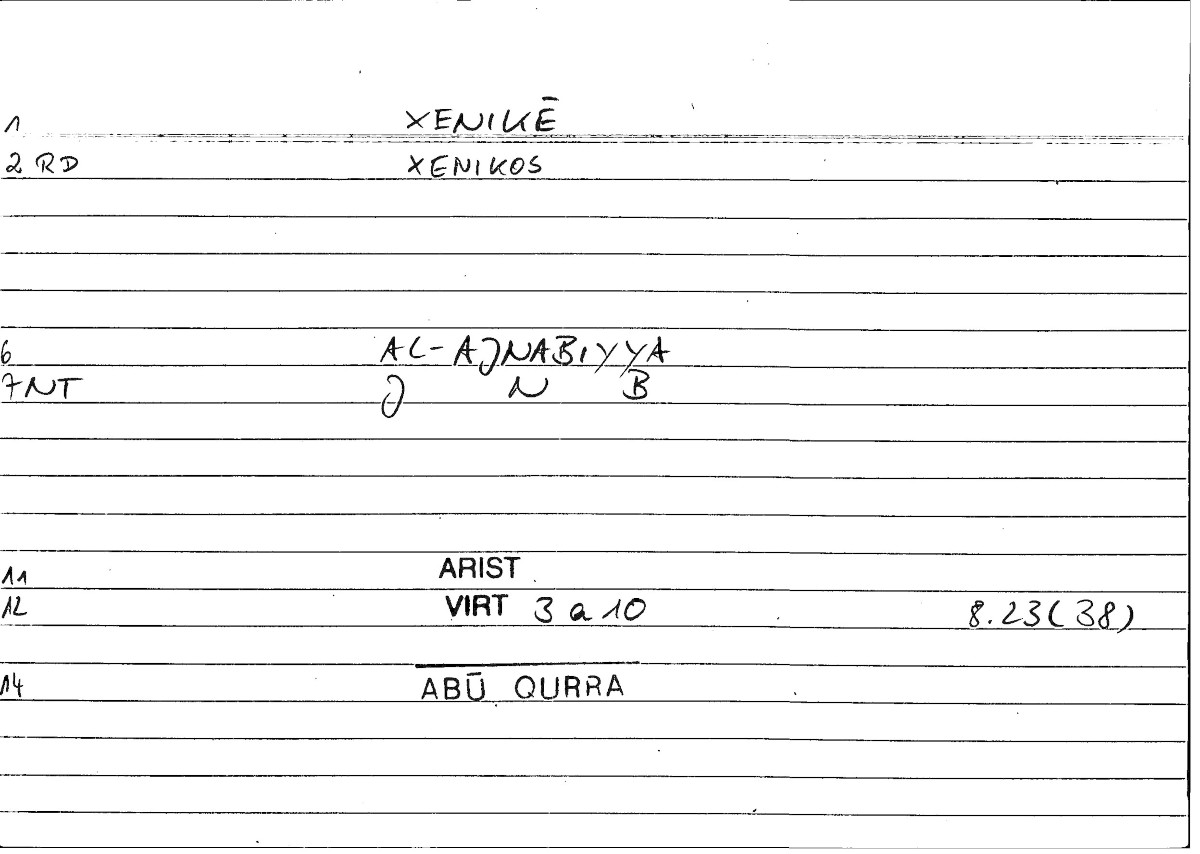 1 XENIKĒ
2 RD XENIKOS
6 AL-AJNABIYYA
7 NT J N B
11 ARIST
12 VIRT 3 a 10 8.23(38)
14 ABŪ QURRA